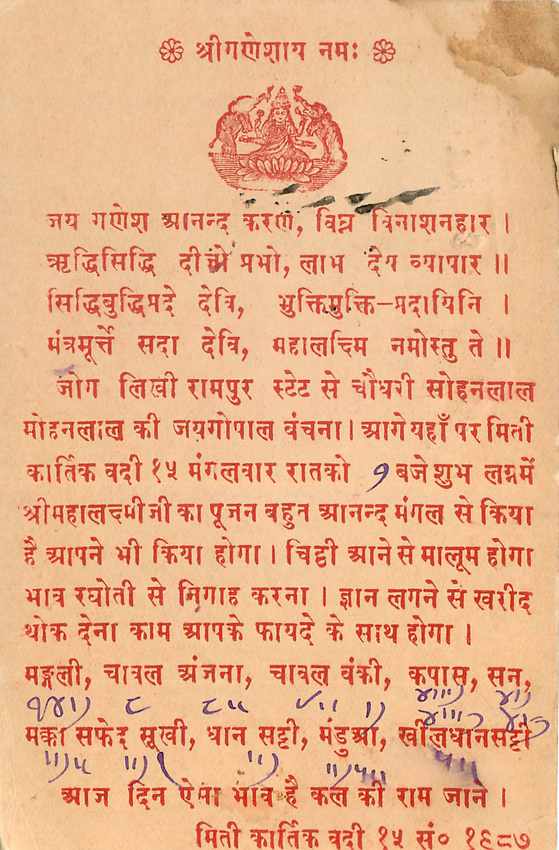 श्रीगणेशाय नमः
जय गणेश आनन्द करण, विघ्न विनाशनहार ।
ऋद्धिसिद्धि दीजो प्रभो, लाभ देय व्यापार ॥
सिद्धिबुद्धिप्रदे देवि, भुक्तिमुक्ति-प्रदायिनि ।
मंत्रमूर्त्ते सदा देवि, महालक्ष्मि नमोस्तु ते ॥
जोग लिखी रामपुर स्टेट से चौधरी सोहनलाल
मोहनलाल की जयगोपाल वंचना । आगे यहाँ पर मिती
कार्तिक वदी १५ मंगलवार रातको १ बजे शुभ लग्नमें
श्रीमहालक्ष्मीजी का पूजन बहुत आनन्द मंगल से किया
है आपने भी किया होगा । चिट्ठी आने से मालूम होगा
भाव रघोती से निगाह करना । ज्ञान लगने सं खरीद
थोक देना काम आपके फायदे के साथ होगा ।
मङ्गली, चावल अंजना, चावल वंकी, कपास, सन,
मक्का सफेद सूखी, धान सट्टी, मंडुआ, खीलधानसट्टी
आज दिन ऐसा भाव है कल की राम जाने ।
मिती कार्तिक वदी १५ सं० १९८७